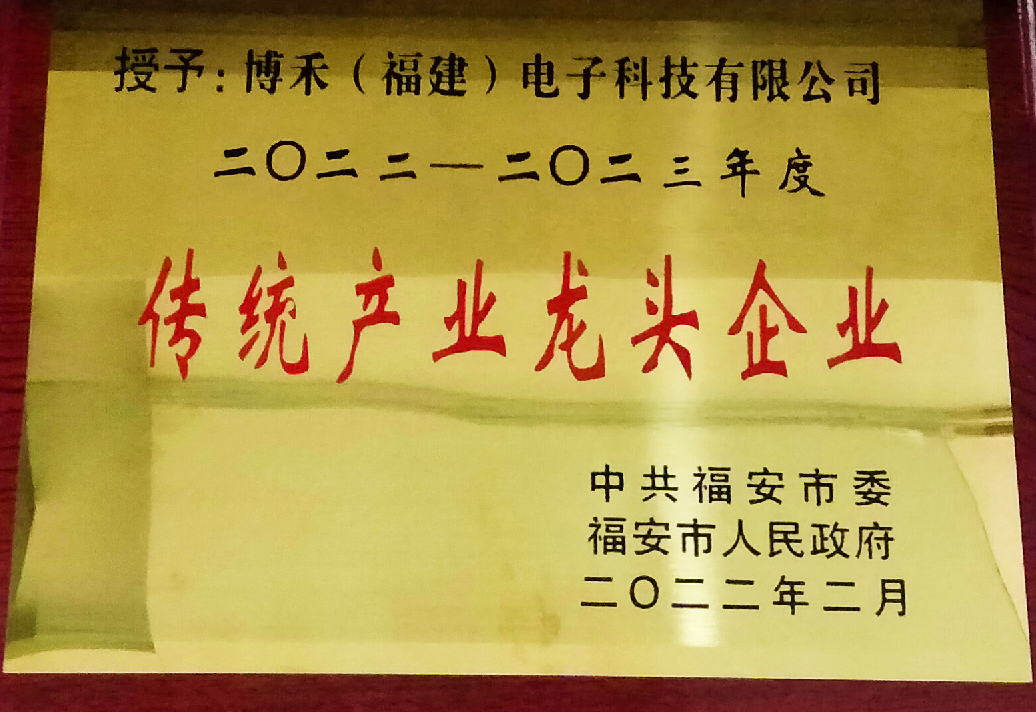 授予：博禾（福建）电子科技有限公司
二〇二二—二〇二三年度
传统产业龙头企业
中共福安市委
福安市人民政府
二〇二二年二月